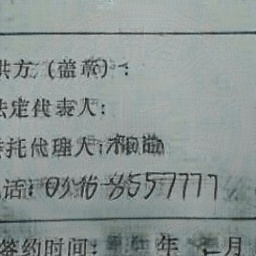 供方（盖章）：
法定代表人：
委托代理人：
电话：0316-8557777
签约时间： 年 月